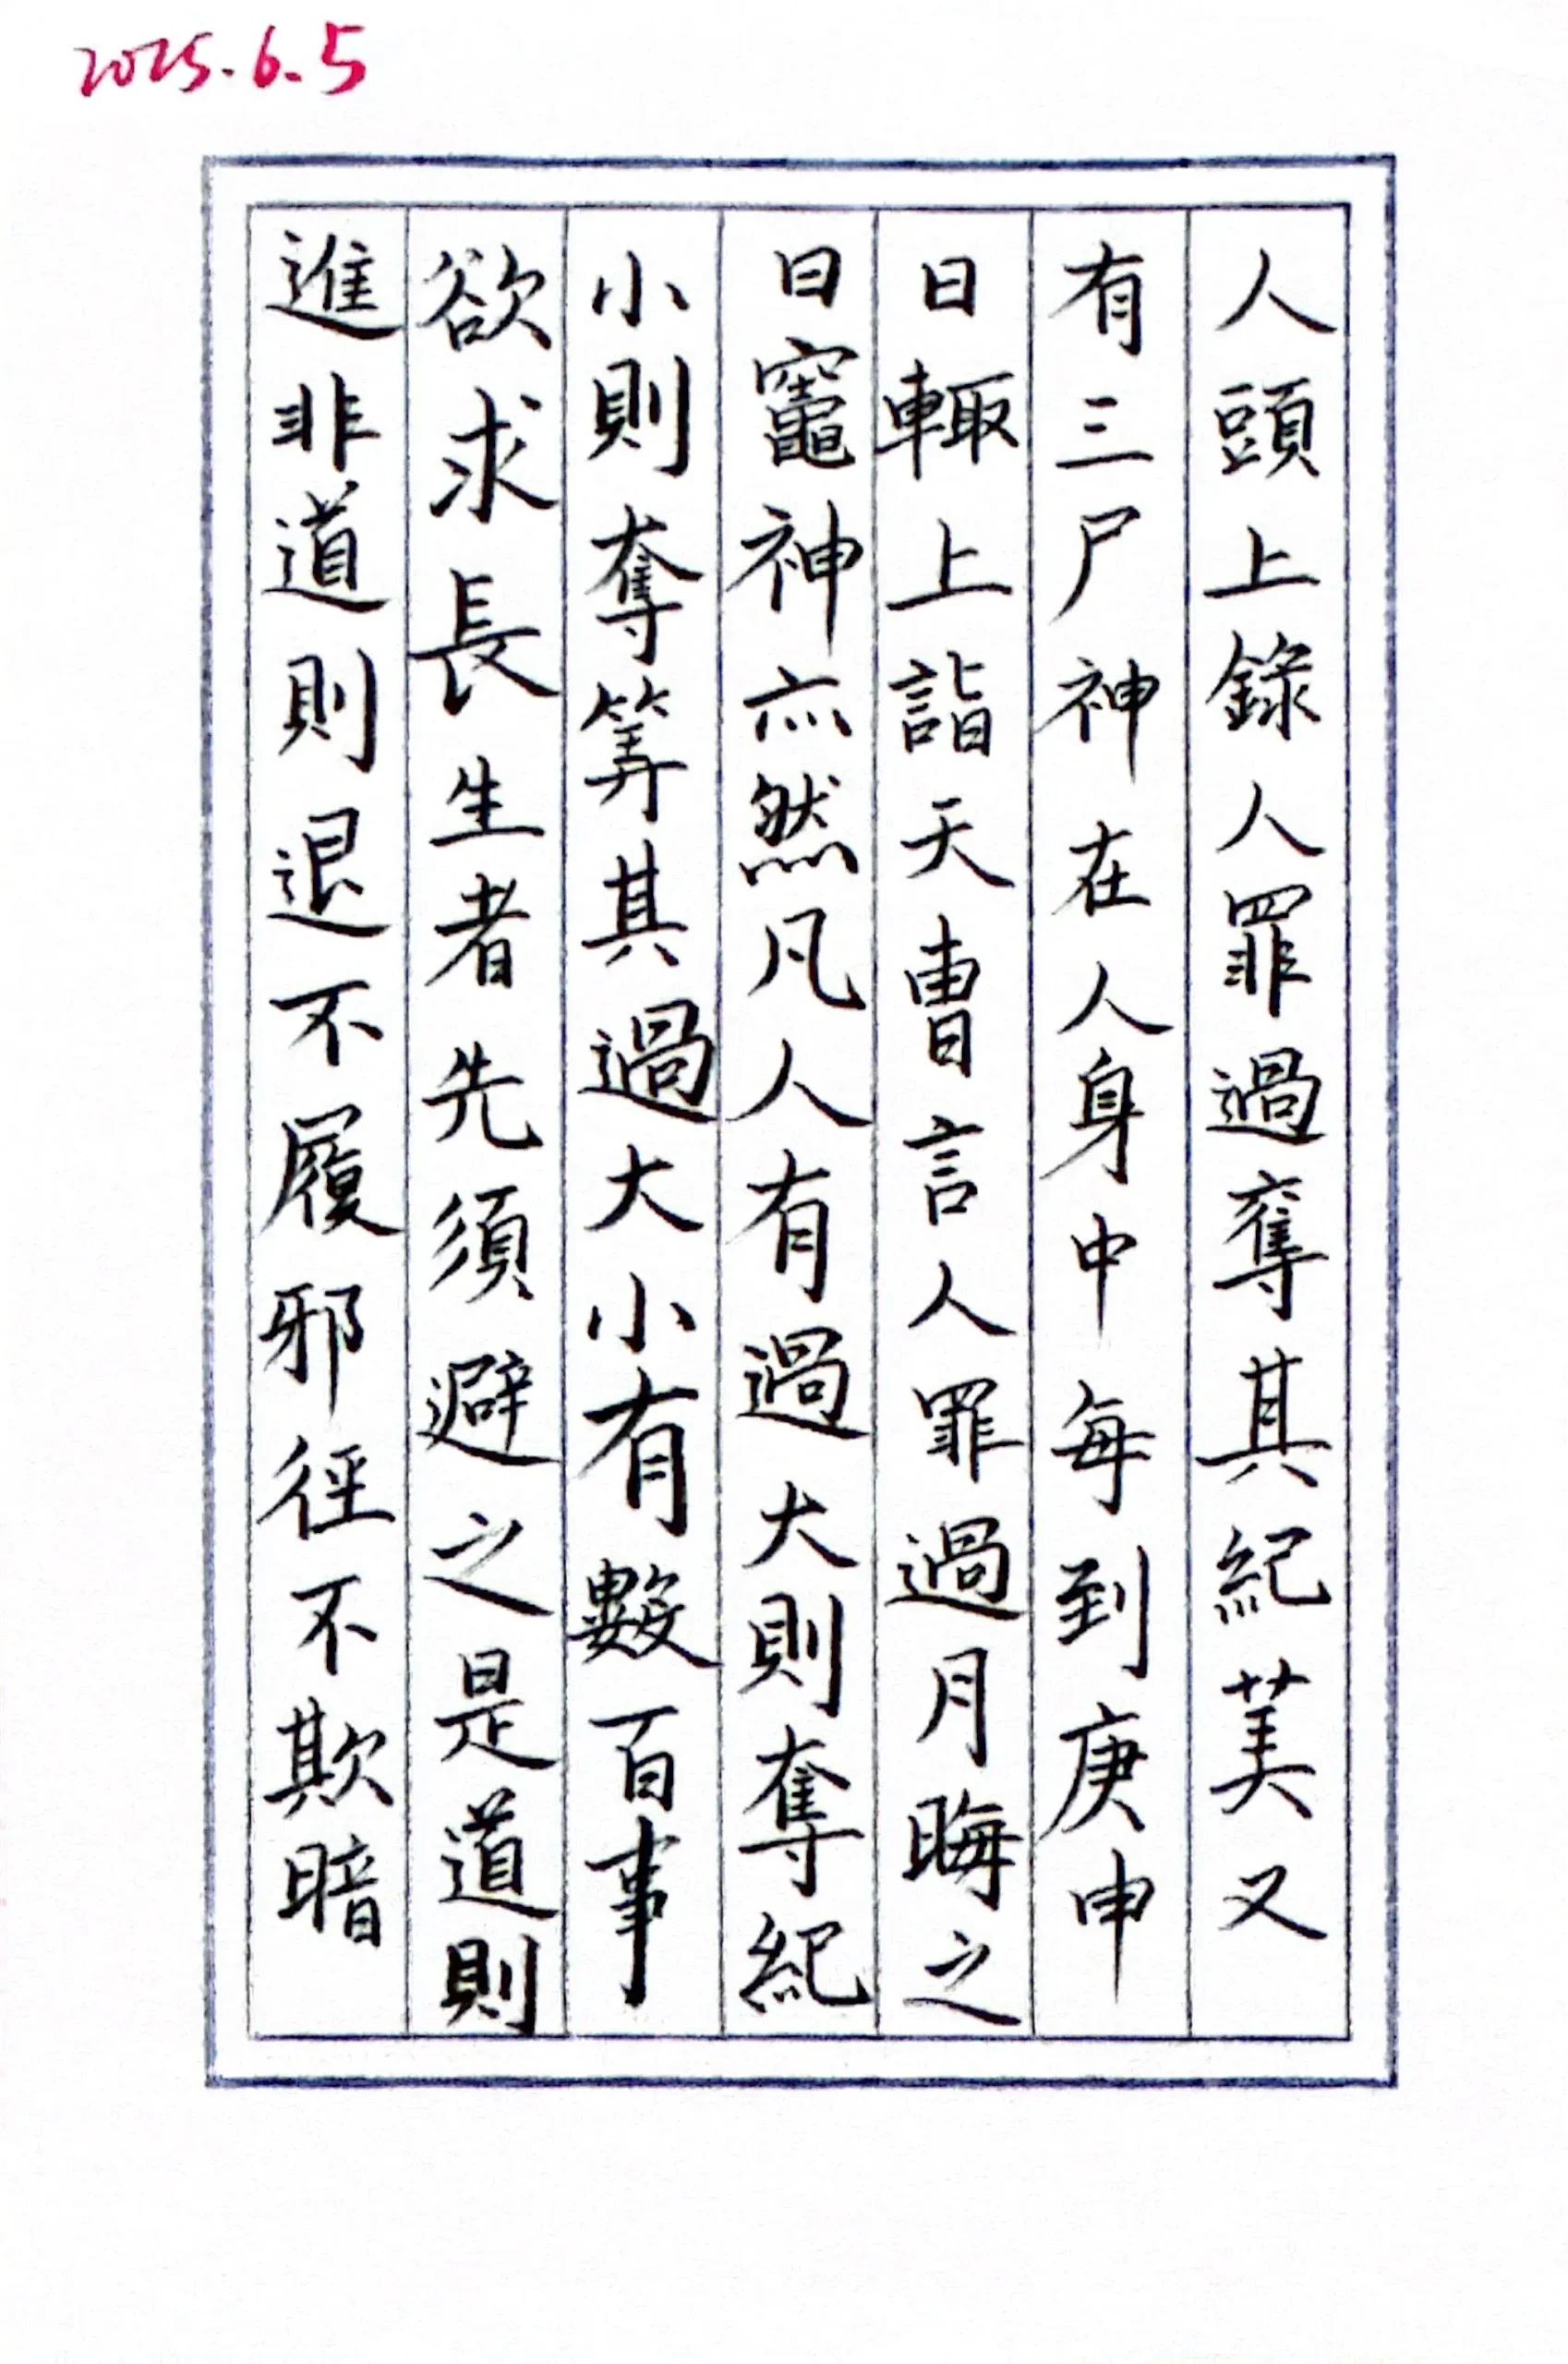 2025.6.5
人頭上錄人罪過奪其紀筭又
有三尸神在人身中每到庚申
日輙上詣天曹言人罪過月晦之
日竈神亦然凡人有過大則奪紀
小則奪筭其過大小有數百事
欲求長生者先須避之是道則
進非道則退不履邪徑不欺暗